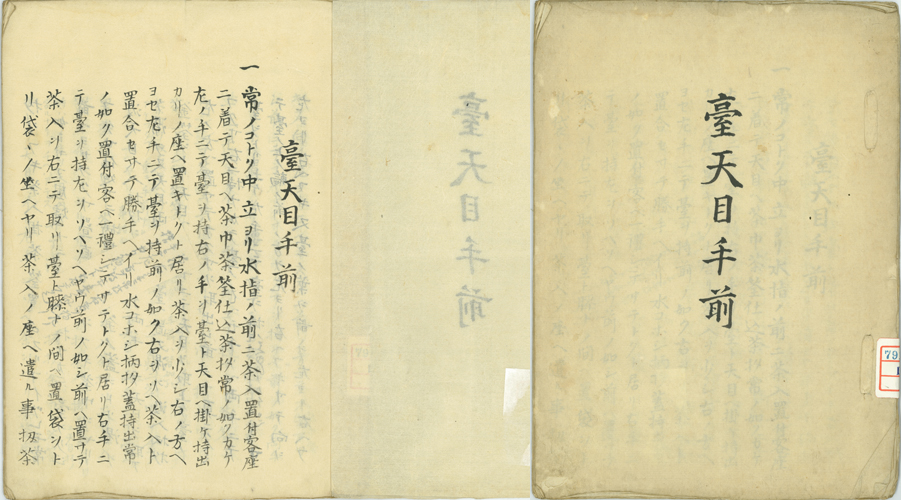 臺天目手前
79
臺天目手前
一 常ノコトク中立ヨリ水指ノ前ニ茶入置付客座
ニ着テ天目ヘ茶巾茶筌仕込茶杓常ノ如クカケ
左ノ手ニテ臺ヲ持右ノ手ヲ臺ト天目ヘ掛ケ持出
カリノ座ヘ置キトクト居リ茶入ヲ少シ右ノ方ヘ
ヨセ左手ニテ臺ヲ持前ノ如ク右ヲソヘ茶入ト
置合セサテ勝手ヘイリ水コホシ柄杓蓋持出常
ノ如ク置付客ヘ一禮シテサテトクト居リ右手ニ
テ臺ヲ持左ヲソヘソヘヤウ前ノ如シ前ヘ置サテ
茶入ヲ右ニテ取リ臺ト膝トノ間ヘ置袋ヲト
リ袋ヲノ坐ヘヤリ茶入ノ座ヘ遣ル事扨茶